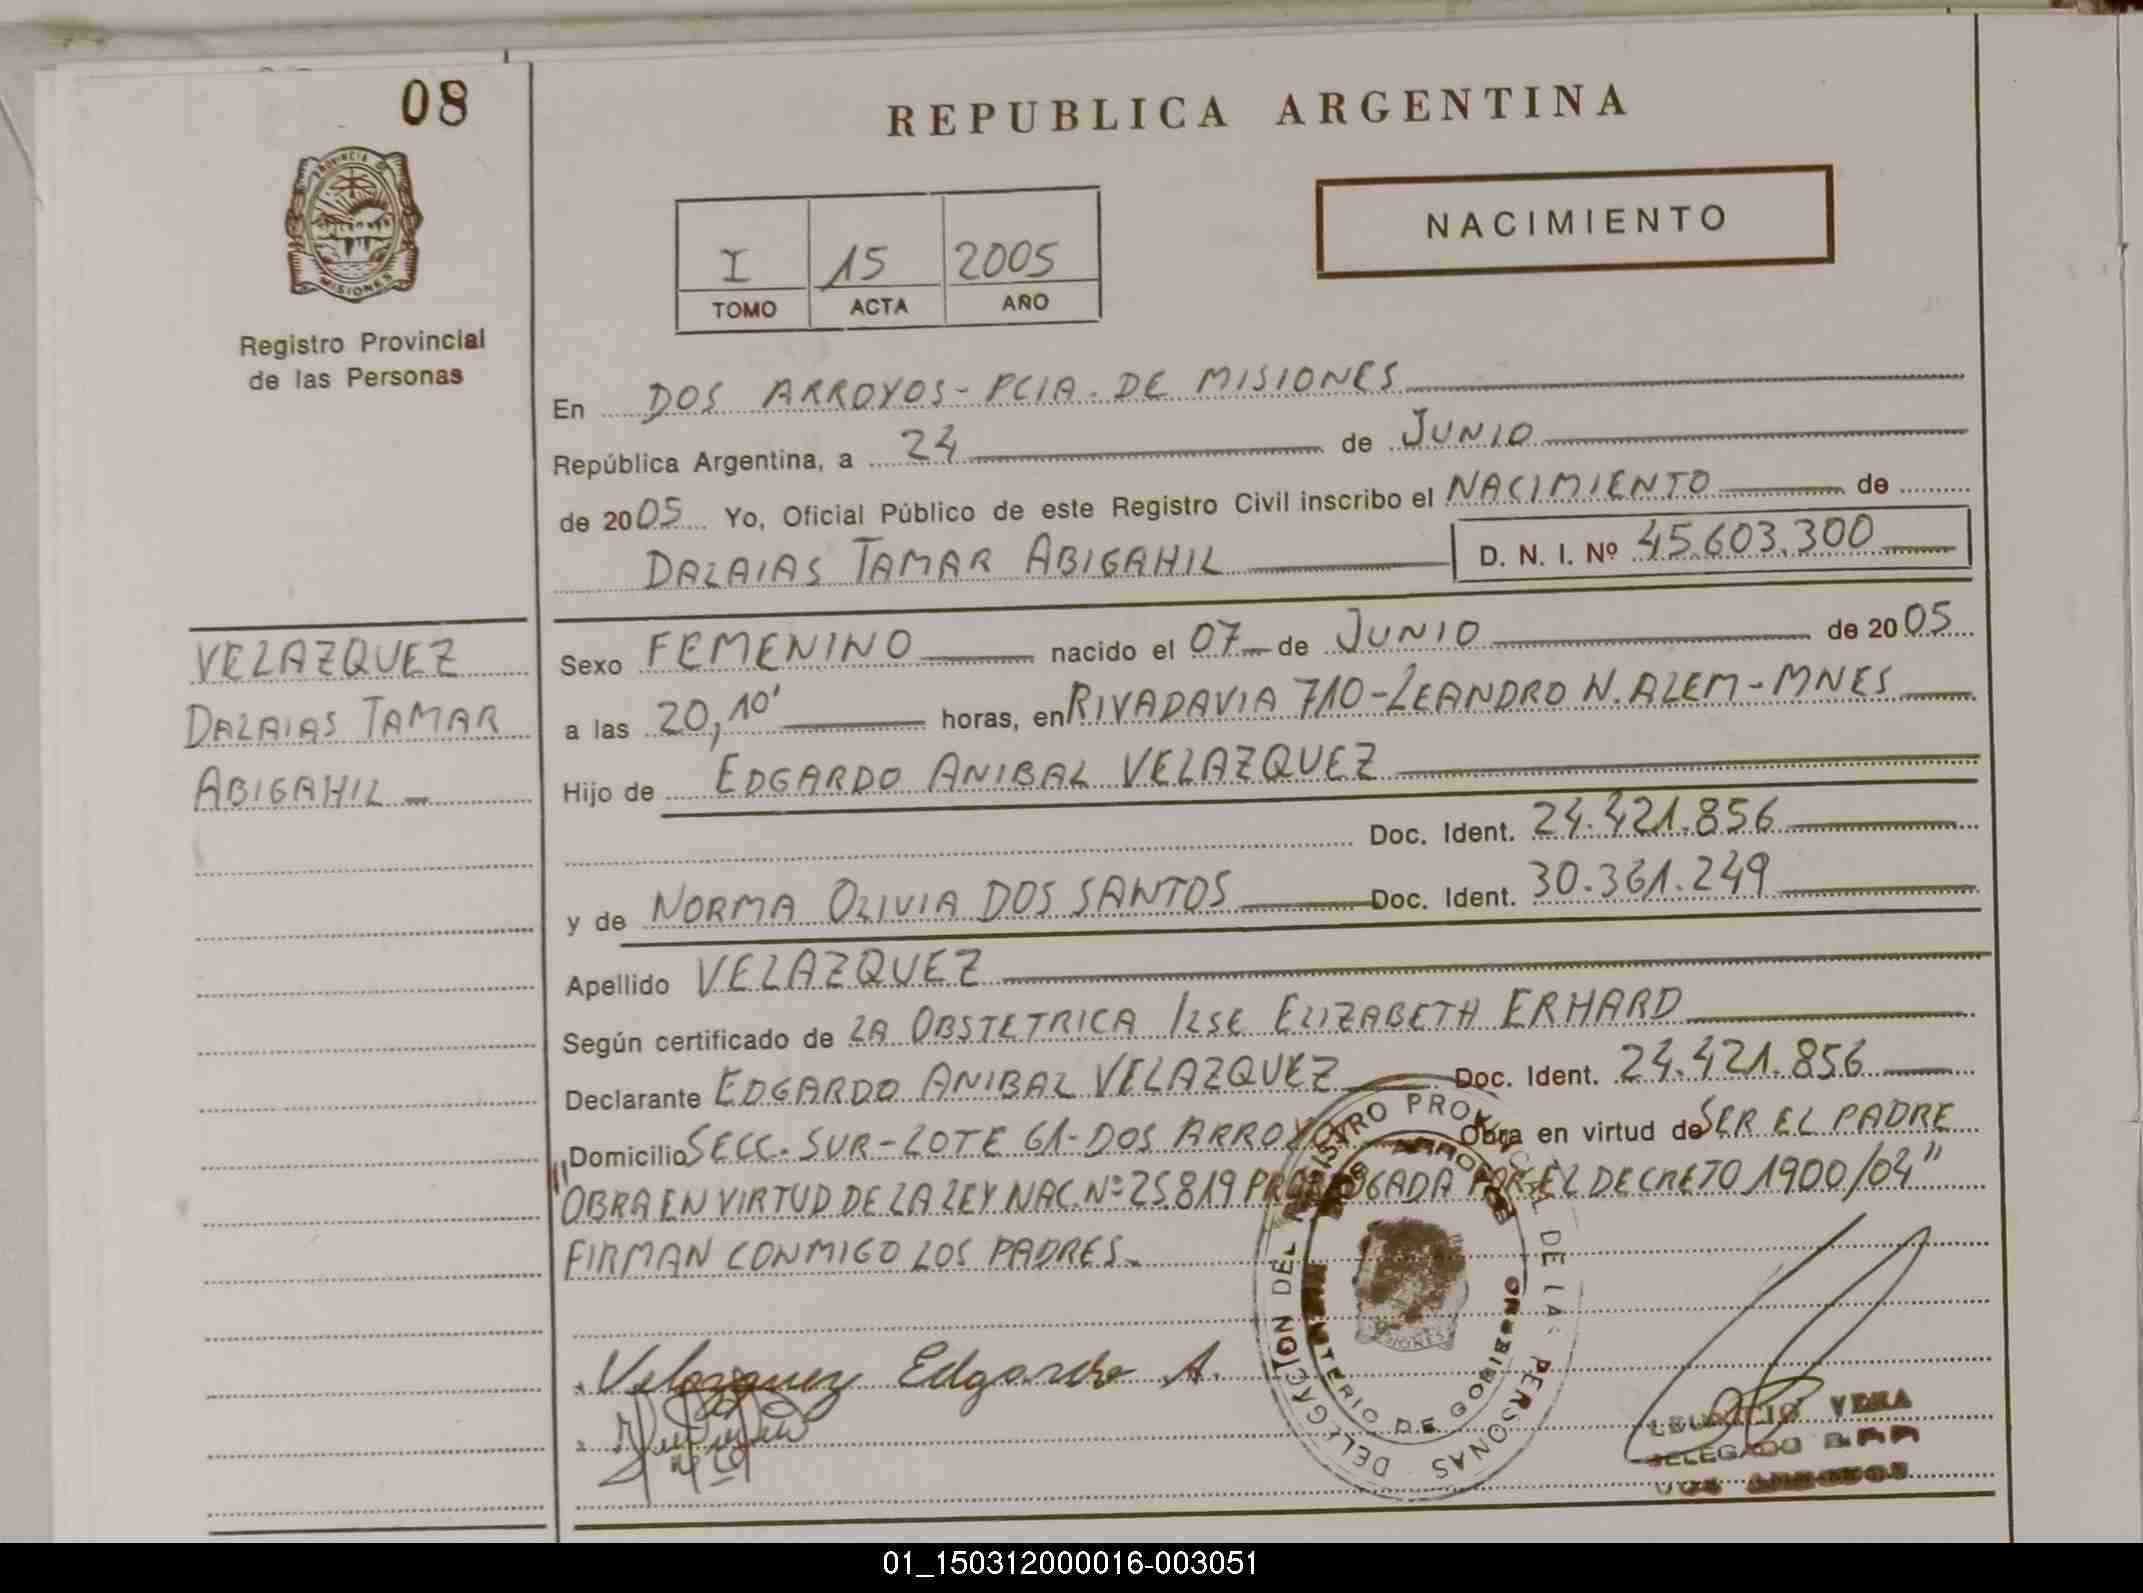 08
REPUBLICA ARGENTINA
PROVINCIA DE
MISIONES
Registro Provincial
de las Personas
NACIMIENTO
I 15 2005
TOMO ACTA AÑO
En DOS ARROYOS - PCIA. DE MISIONES
República Argentina, a 24 de JUNIO
de 2005 Yo, Oficial Público de este Registro Civil inscribo el NACIMIENTO de
DALAIAS TAMAR ABIGAHIL D. N. I. Nº 45.603.300
VELAZQUEZ
DALAIAS TAMAR
ABIGAHIL -
Sexo FEMENINO nacido el 07 de JUNIO de 2005
a las 20,10' horas, en RIVADAVIA 710-LEANDRO N. ALEM-MNES
Hijo de EDGARDO ANIBAL VELAZQUEZ
Doc. Ident. 24.421.856
y de NORMA OLIVIA DOS SANTOS Doc. Ident. 30.361.249
Apellido VELAZQUEZ
Según certificado de LA OBSTETRICA ILSE ELIZABETH ERHARD
Declarante EDGARDO ANIBAL VELAZQUEZ Doc. Ident. 24.421.856
Domicilio SECC. SUR-LOTE 61-DOS ARROYOS Obra en virtud de SER EL PADRE
"OBRA EN VIRTUD DE LA LEY NAC. Nº 25.819 PRORROGADA POR EL DECRETO 1900/04"
FIRMAN CONMIGO LOS PADRES.
DELEGACION DEL REGISTRO PROVINCIAL DE LAS PERSONAS
DOS ARROYOS
MINISTERIO DE GOBIERNO
MISIONES
Velazquez Edgardo A.
VERA
DELEGADO
DOS ARROYOS
01_150312000016-003051